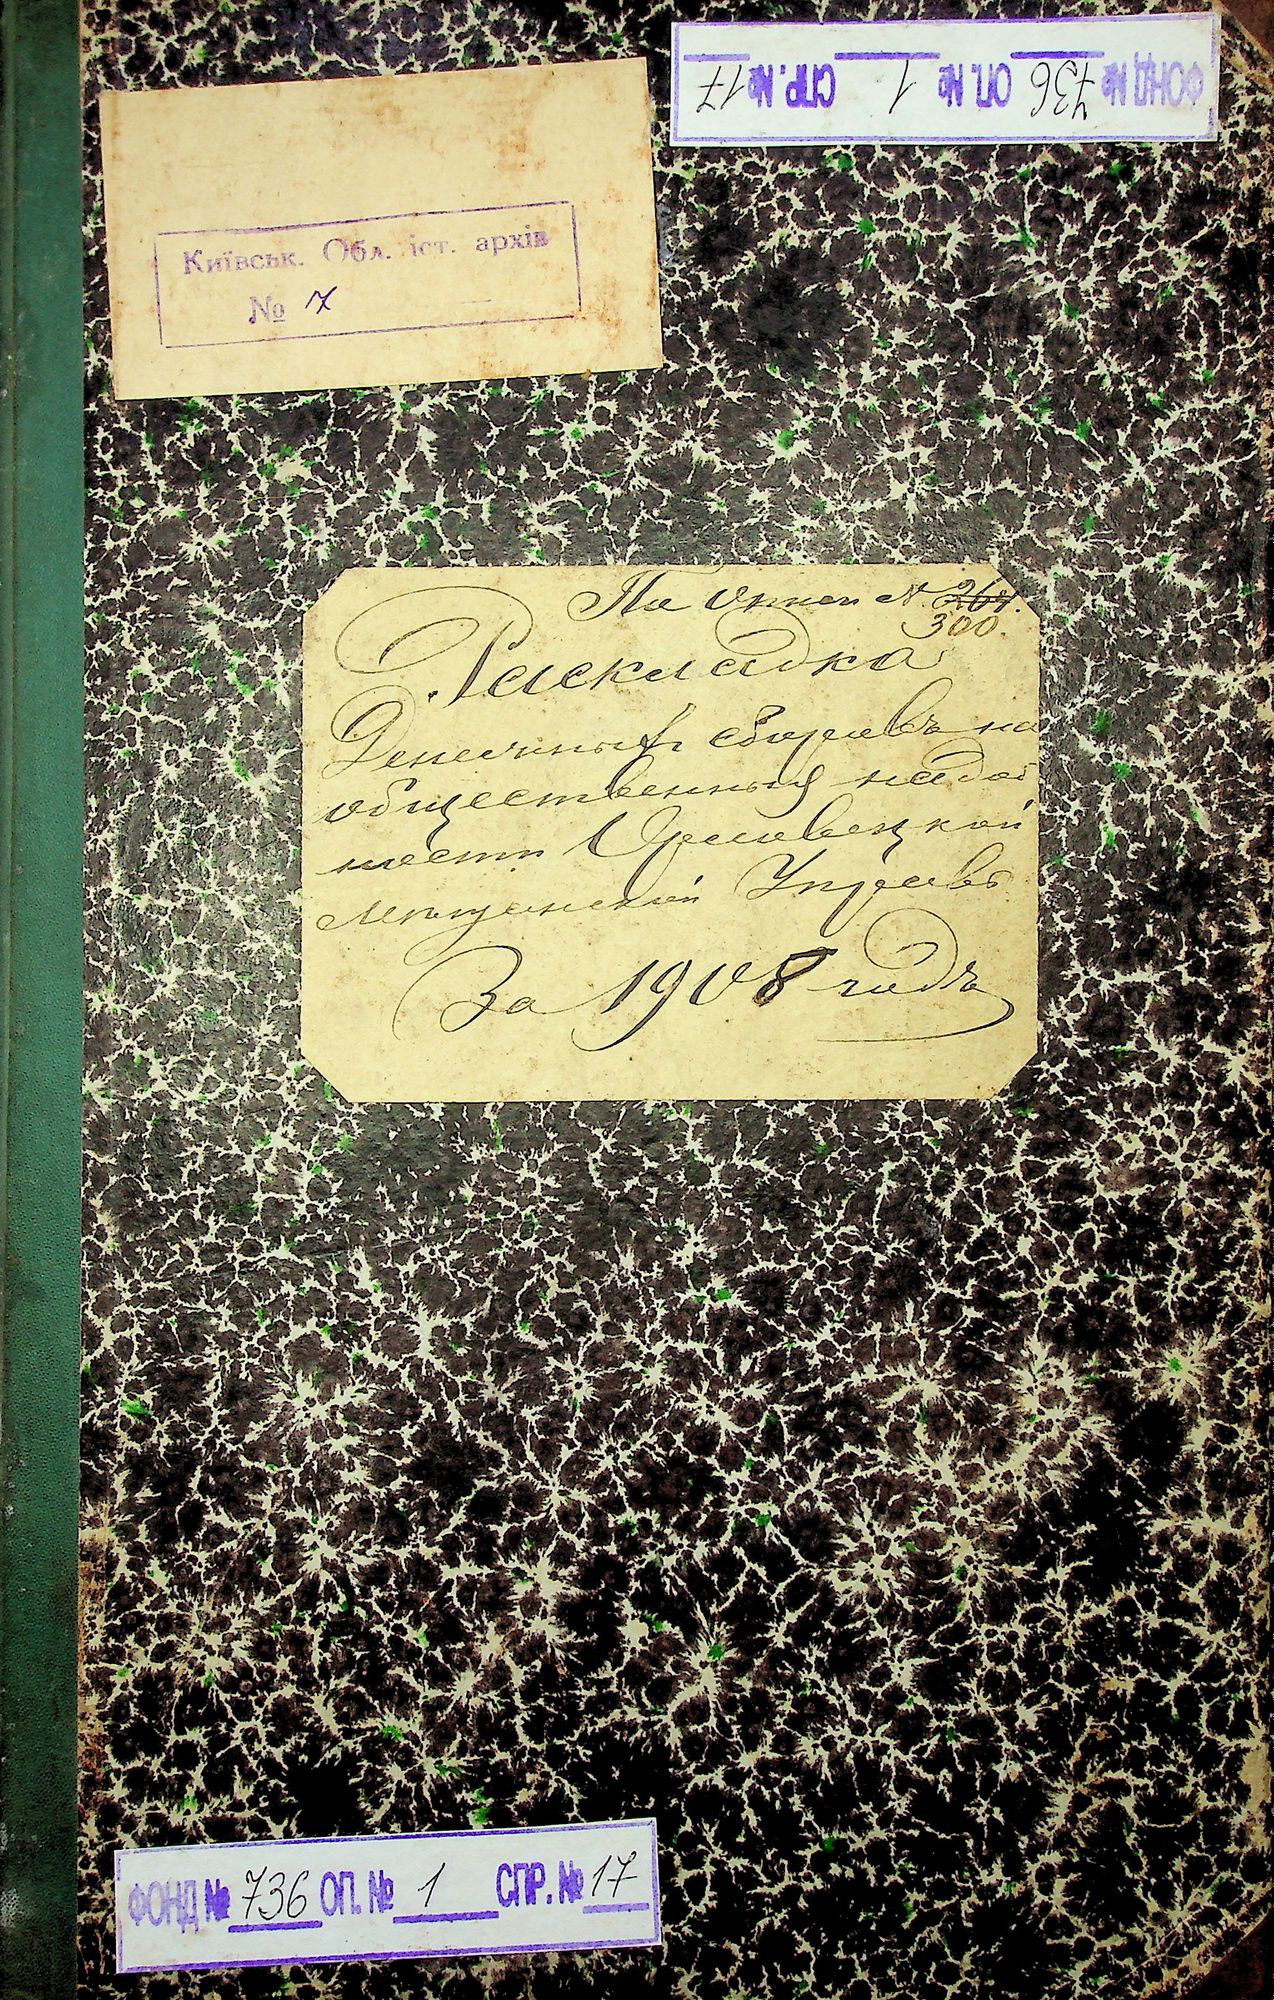 ФОНД № 736 ОП. № 1 СПР. № 17
Київськ. Обл. іст. архів
№ 7
По описи № 264.
300.
Раскладка
Денежныхъ сборовъ на
общественныя надоб
ности
Мѣщанской Управѣ
За 1908 годъ
ФОНД № 736 ОП. № 1 СПР. № 17